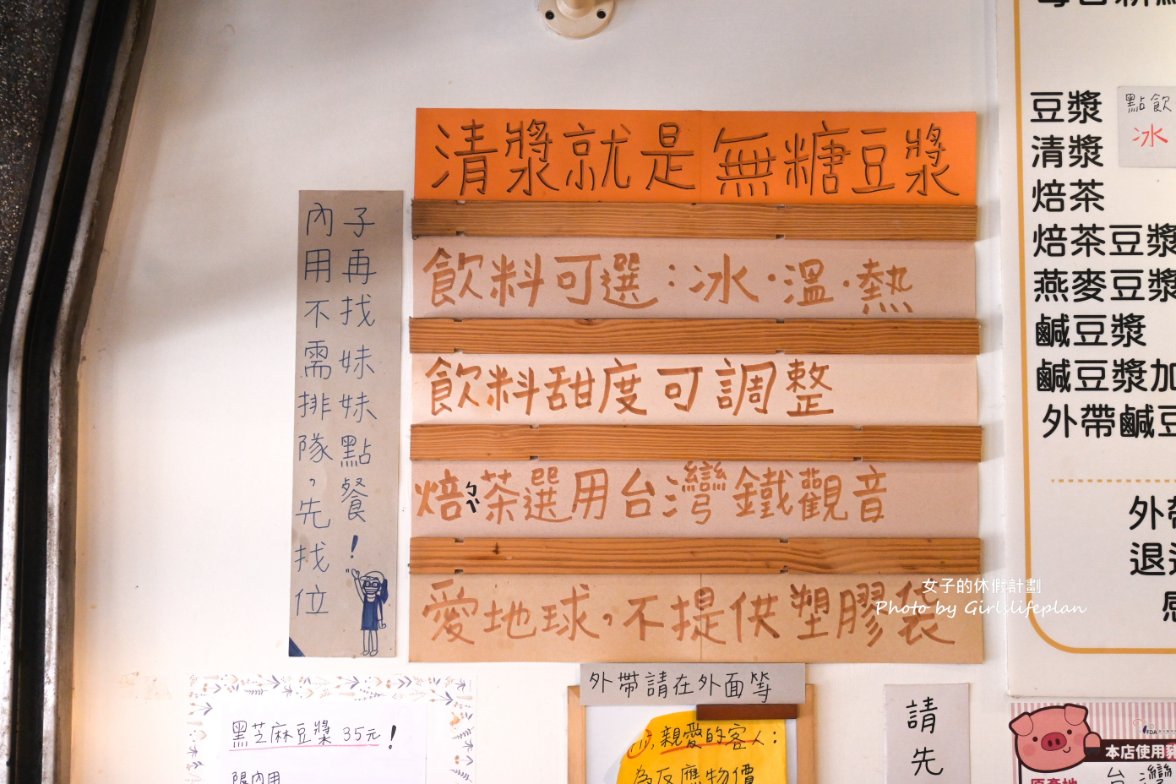 清漿就是無糖豆漿
飲料可選：冰·溫·熱
飲料甜度可調整
焙ㄅㄟˋ茶選用台灣鐵觀音
愛地球，不提供塑膠袋
內用不需排隊，先找位
子再找妹妹點餐！
豆漿
清漿
焙茶
焙茶豆漿
燕麥豆漿
鹹豆漿
鹹豆漿加
外帶鹹豆
點飲
冰
外帶
退
女子的休假計劃
Photo by Girlslifeplan
外帶請在外面等
黑芝麻豆漿 35元！
限內用
親愛的客人：
為反應物價
請先
本店使用豬
台灣